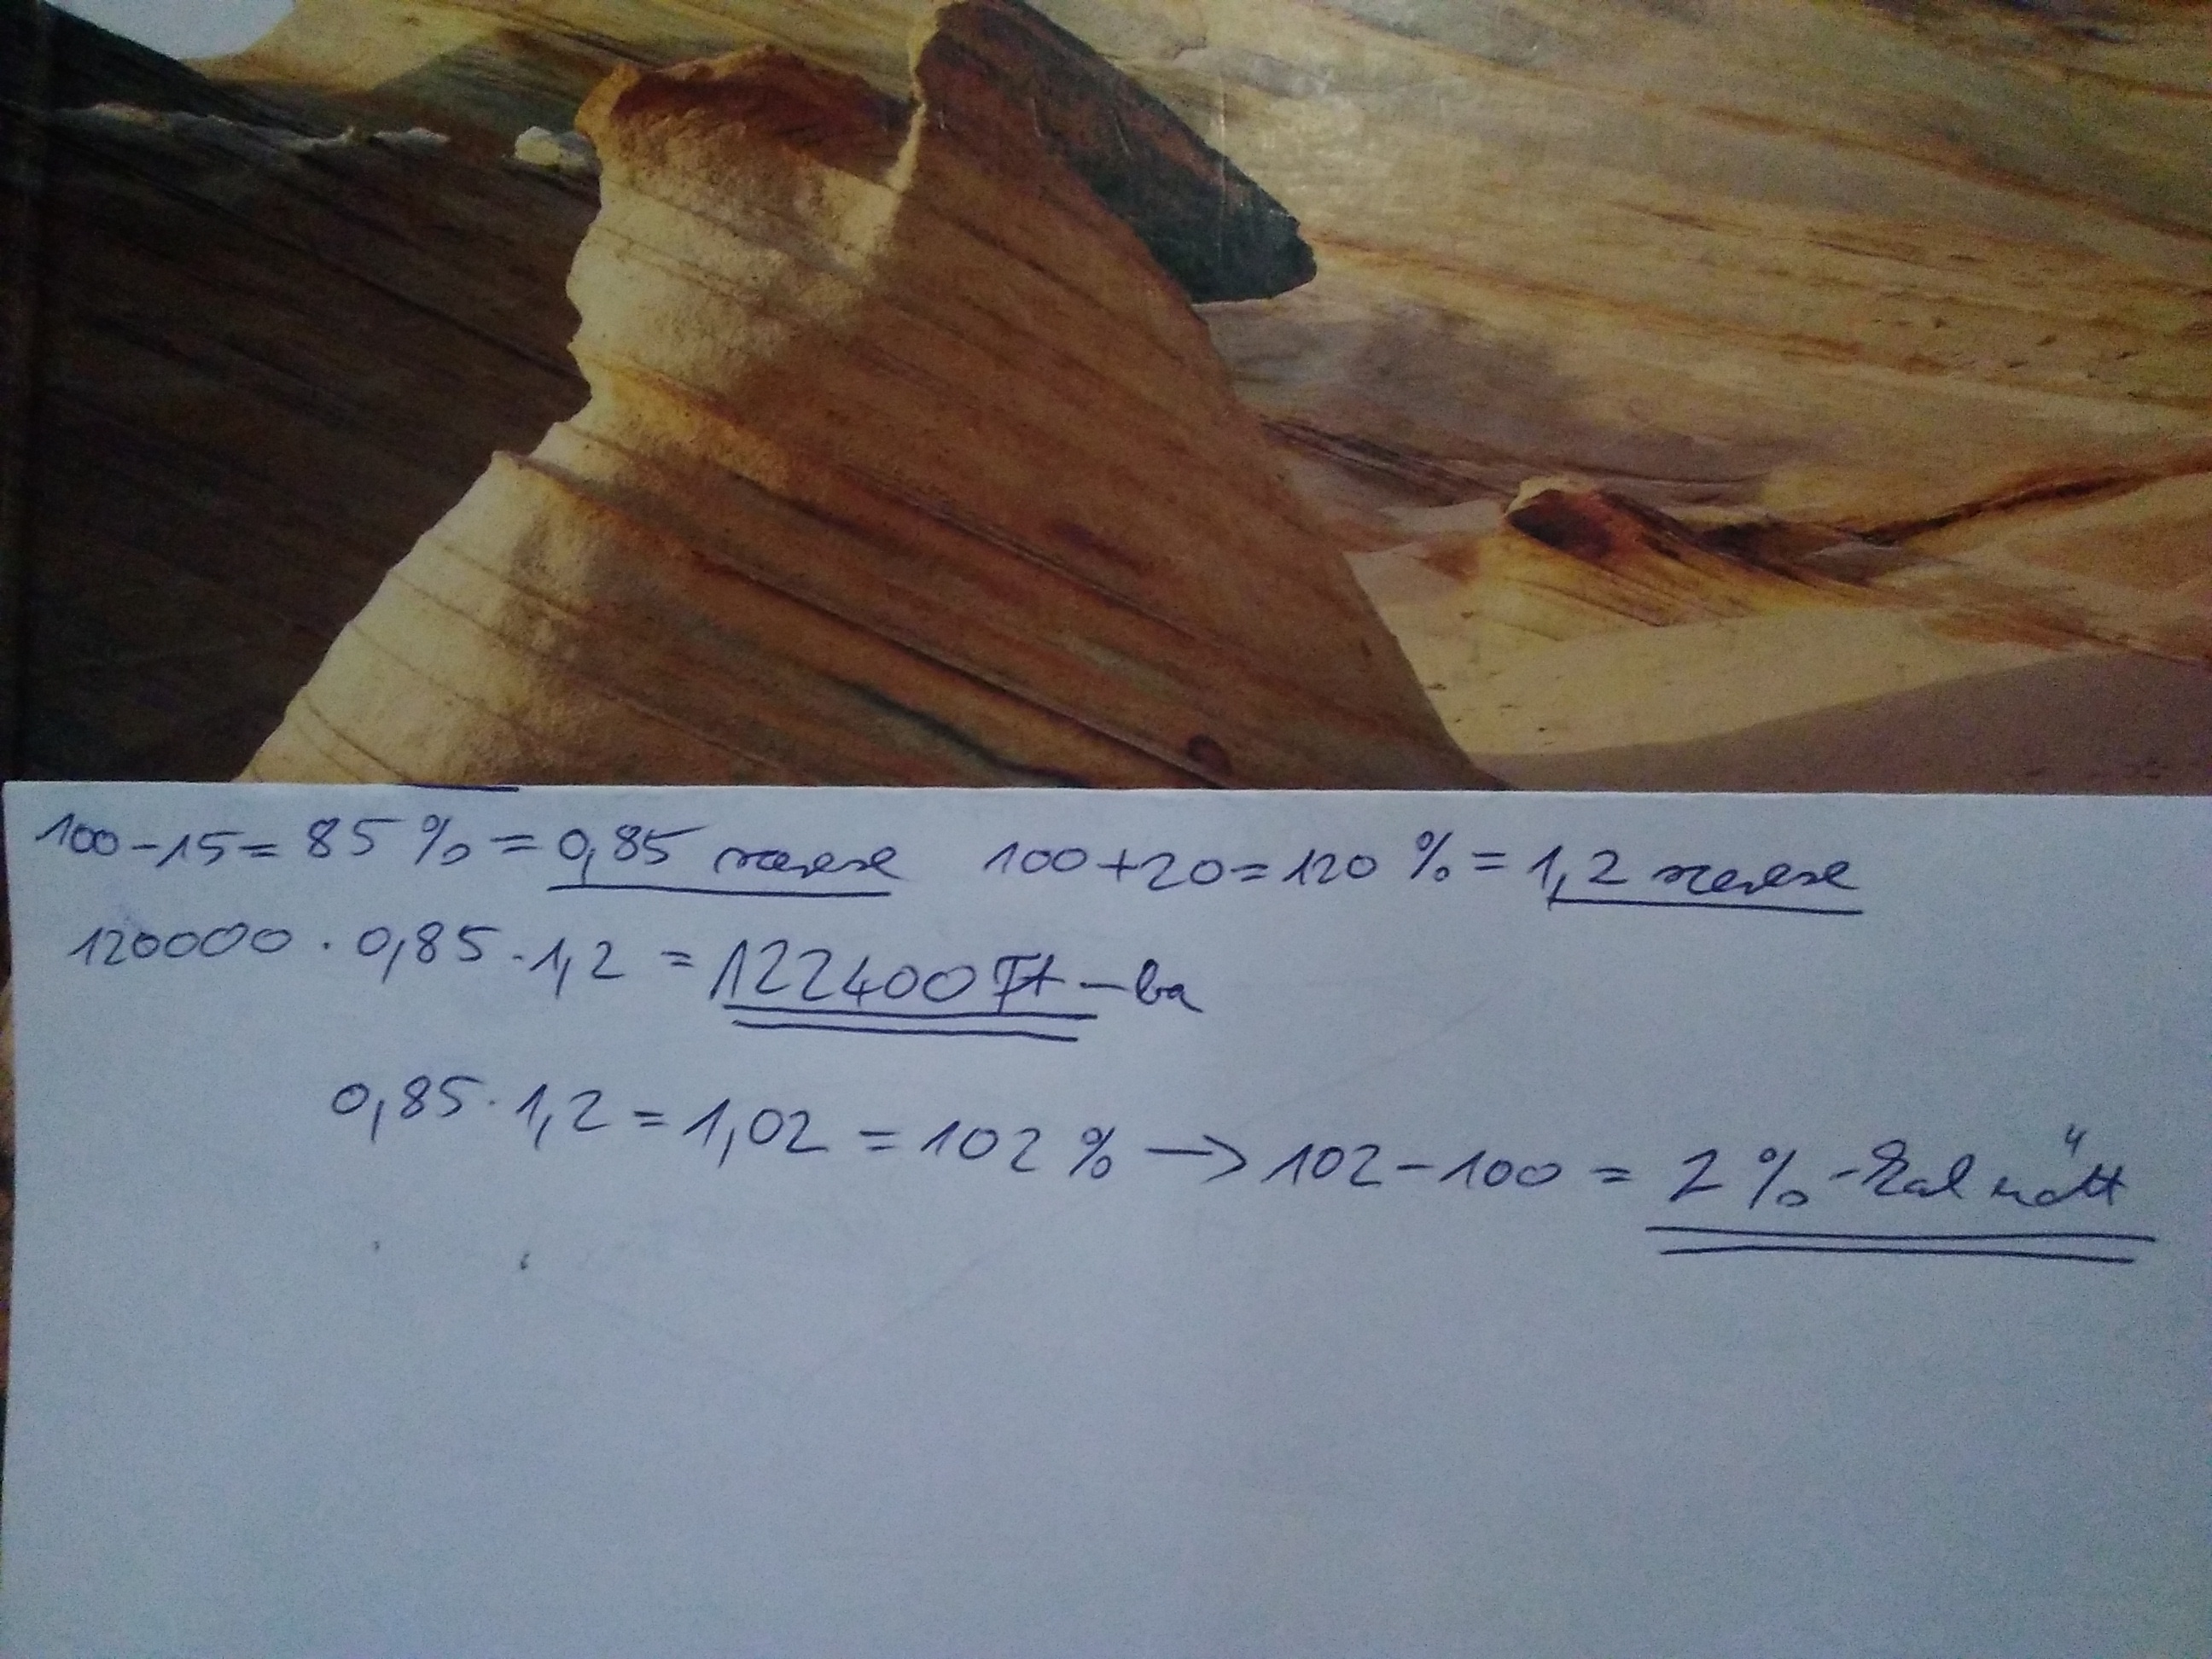 100-15=85%=0,85 szerese 100+20=120%=1,2 szerese
120000·0,85·1,2=122400Ft-ba
0,85·1,2=1,02=102%→102-100=2%-kal nőtt